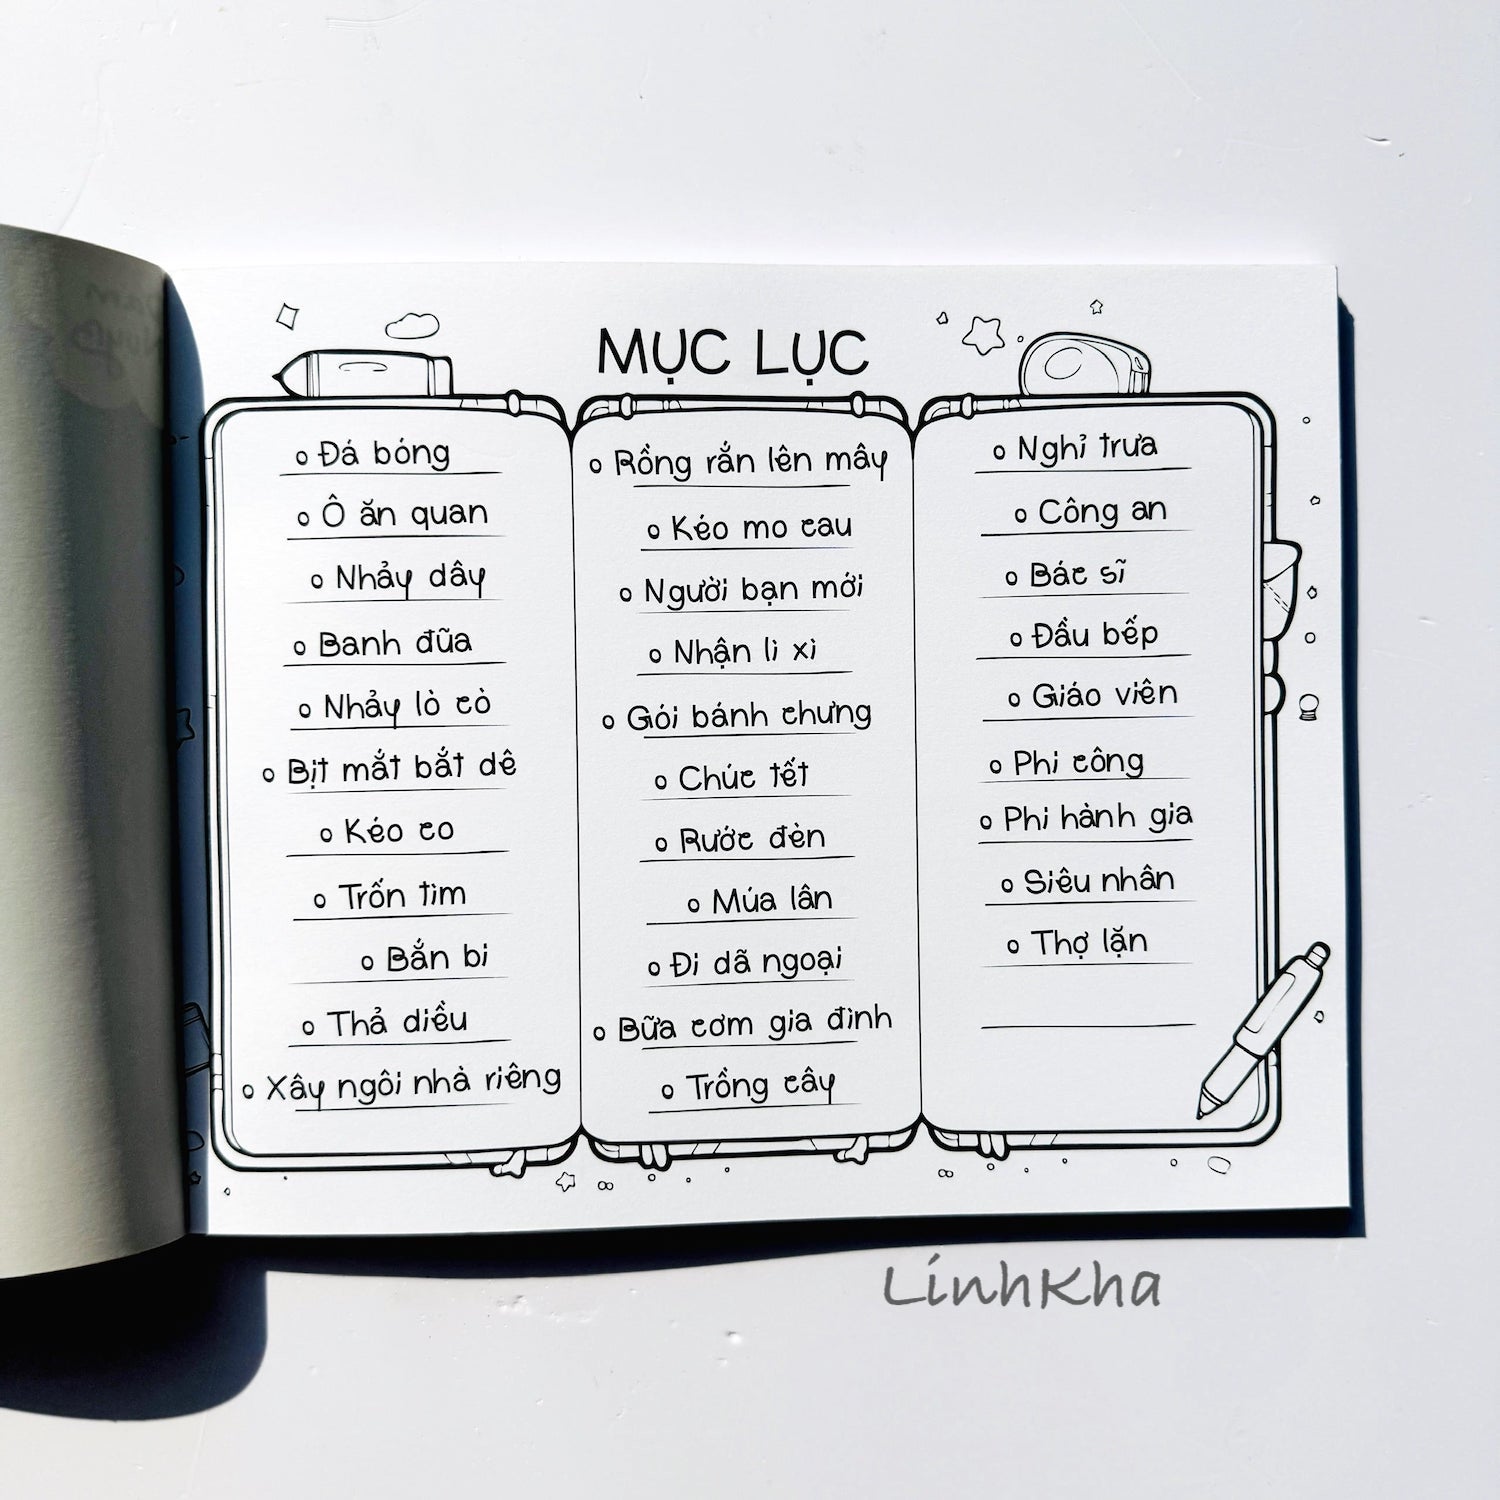 MỤC LỤC
Đá bóng
Ô ăn quan
Nhảy dây
Banh đũa
Nhảy lò cò
Bịt mắt bắt dê
Kéo co
Trốn tìm
Bắn bi
Thả diều
Xây ngôi nhà riêng
Rồng rắn lên mây
Kéo mo cau
Người bạn mới
Nhận lì xì
Gói bánh chưng
Chúc tết
Rước đèn
Múa lân
Đi dã ngoại
Bữa cơm gia đình
Trồng cây
Nghỉ trưa
Công an
Bác sĩ
Đầu bếp
Giáo viên
Phi công
Phi hành gia
Siêu nhân
Thợ lặn
LinhKha